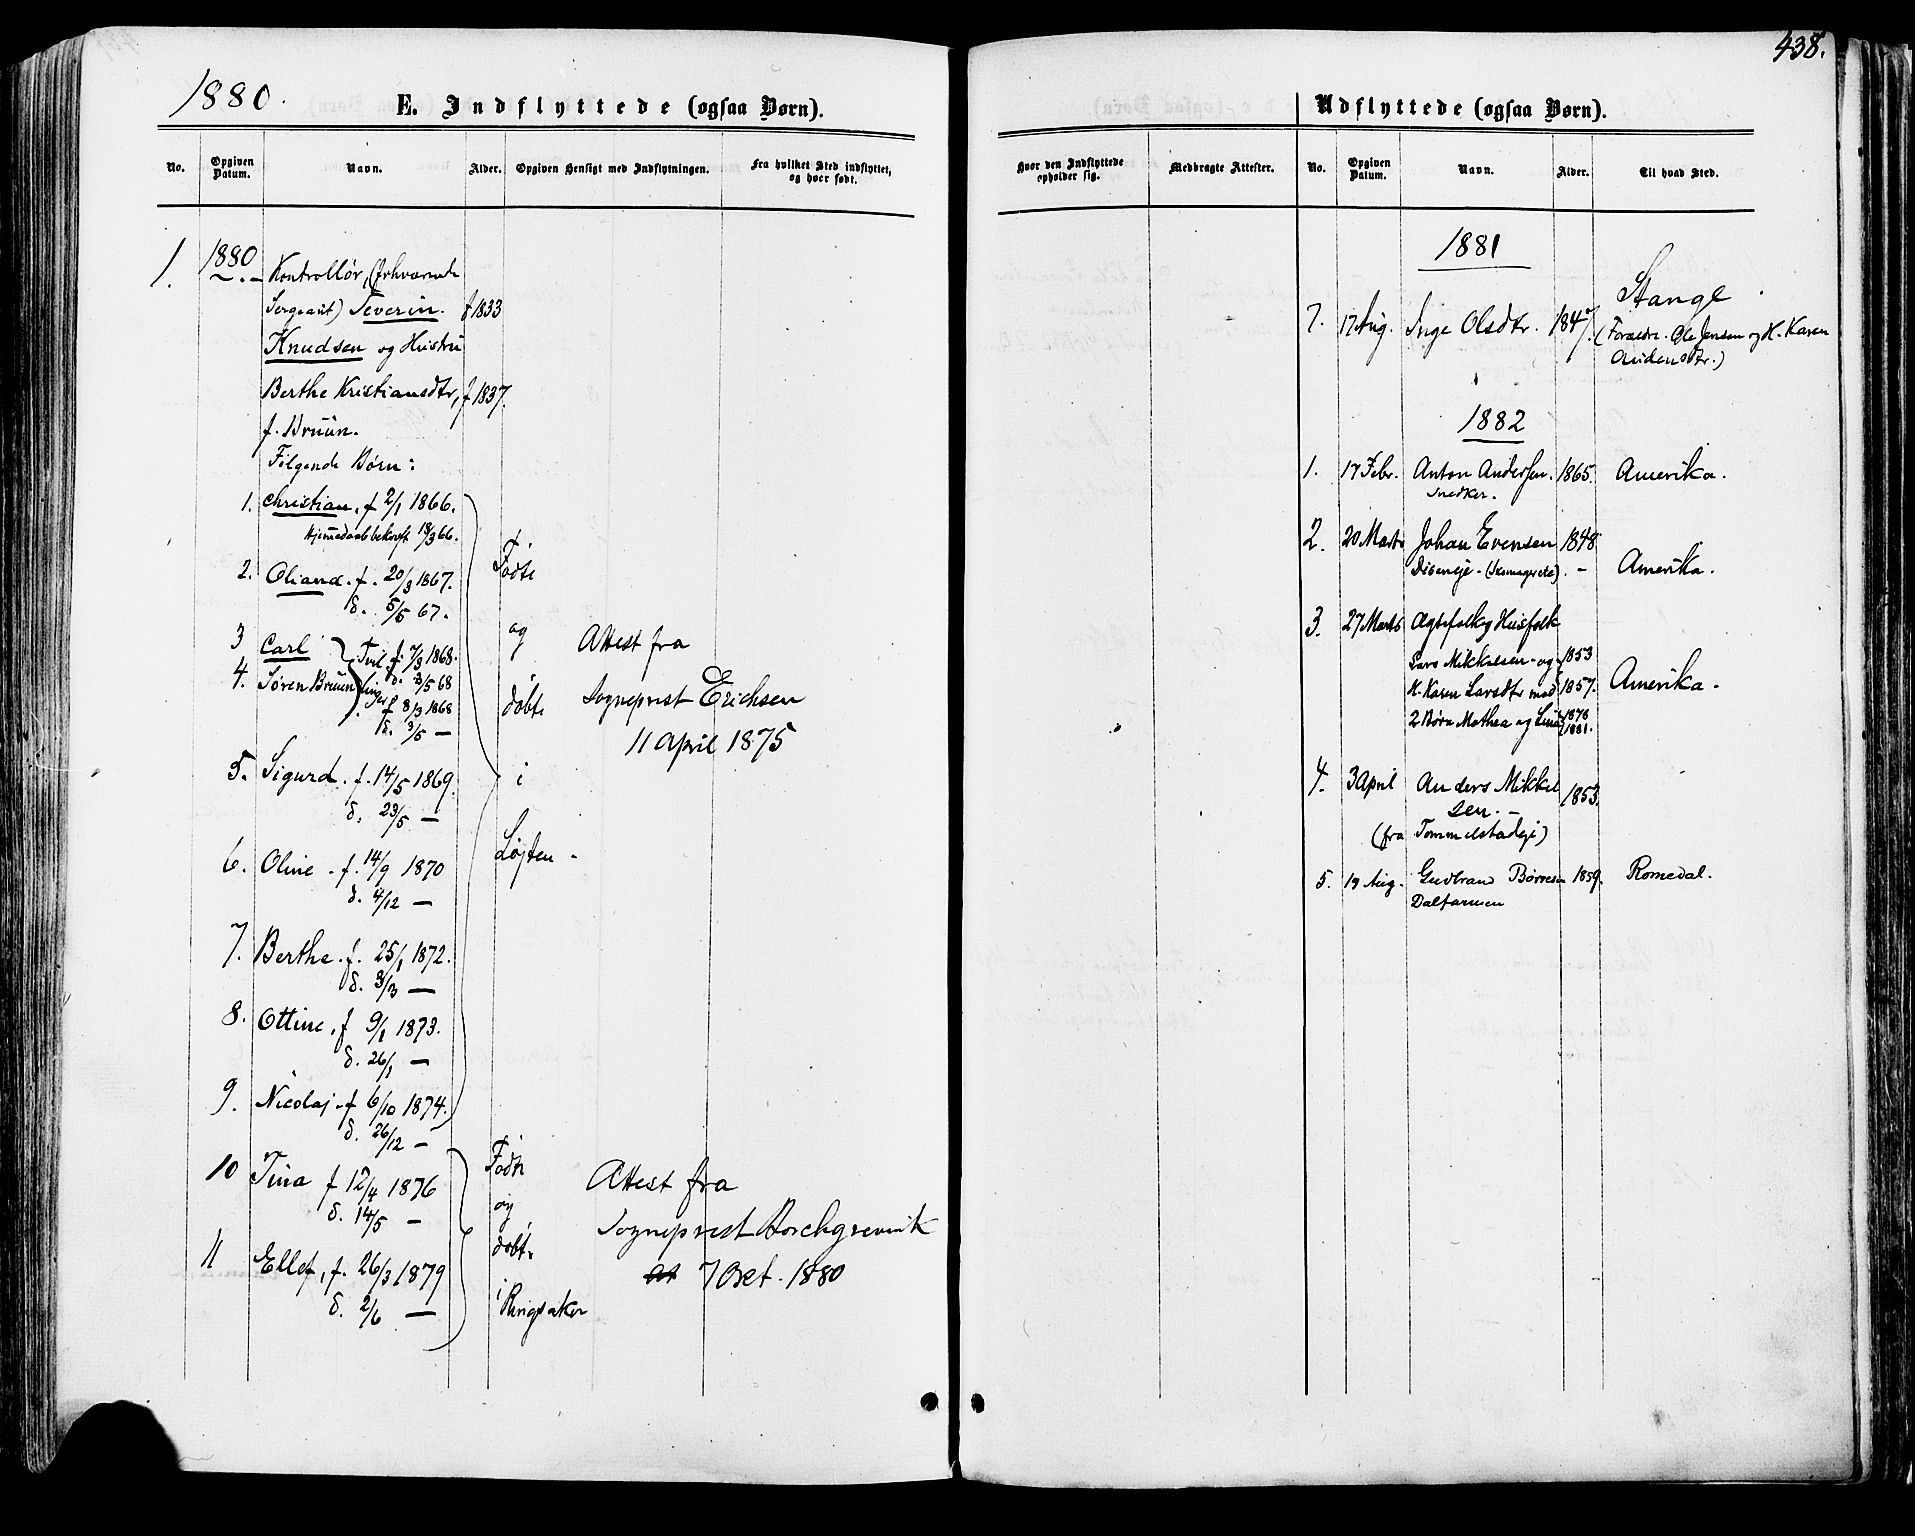 1880.
E. Indflyttede (ogsaa Børn).
No.
Opgiven Datum.
Navn.
Alder.
Opgiven Hensigt med Indflytningen.
Fra hvilket Sted indflyttet, og hvor født.
1. 1880 Kontrollør, (forhværende
Sergeant) Severin f 1833
Knudsen og Hustru
Berthe Kristiansdtr, f 1837.
f. Bruun.
Følgende Børn:
1. Christian, f 2/1 1866.
Hjemmedaab bekræft 18/3 66.
2. Oliand. f. 20/3 1867.
d. 5/5 67.
3 Carl Tvil f. 7/3 1868.
d. 3/5 68
4. Søren Bruun linger f 8/3 1868
d. 3/5 —
5. Sigurd. f. 14/5 1869.
d. 23/5 —
6. Oline. f. 14/9 1870
d. 4/12 —
7. Berthe. f. 25/1 1872.
d. 3/3 —
8. Ottine, f 9/1 1873.
d. 26/1 —
9. Nicolaj. f 6/10 1874.
d. 26/12 —
10 Tina f 12/4 1876
d. 14/5 —
11 Ellef, f. 26/3 1879
d. 2/6 —
Fødte
og
døbte
i
Løjten -
Attest fra
Sogneprest Erichsen
11 April 1875
Født
og
døbt.
i Ringsaker
Attest fra
Sogneprest Borchgrevink
7 Oct. 1880
438.
Udflyttede (ogsaa Børn).
Hvor den Indflyttede opholder sig.
Medbragte Attester.
No.
Opgiven Datum.
Navn.
Alder.
Til hvad Sted.
1881
7. 17 Aug. Inge Olsdtr. 1847. Stange
(Forældre. Ole Jensen og H. Karen
1882
1. 17 Febr. Anton Andersen. 1865. Amerika.
Snedker.
2. 20 Marts Johan Evensen 1848
Diseneje - . — Amerika.
3. 27 Marts Ægtefolk og Husfolk
Lars Mikkelsen - og 1853
H. Karen Larsdtr med 1857. Amerika.
2 Børn Mathea og Lina 1878
1881.
4. 3 April Anders Mikkel
sen. — 1853.
(fra Tommelstadeje)
5. 19 Aug. Gudbrand Børresen 1859. Romedal.
Dalfarmen